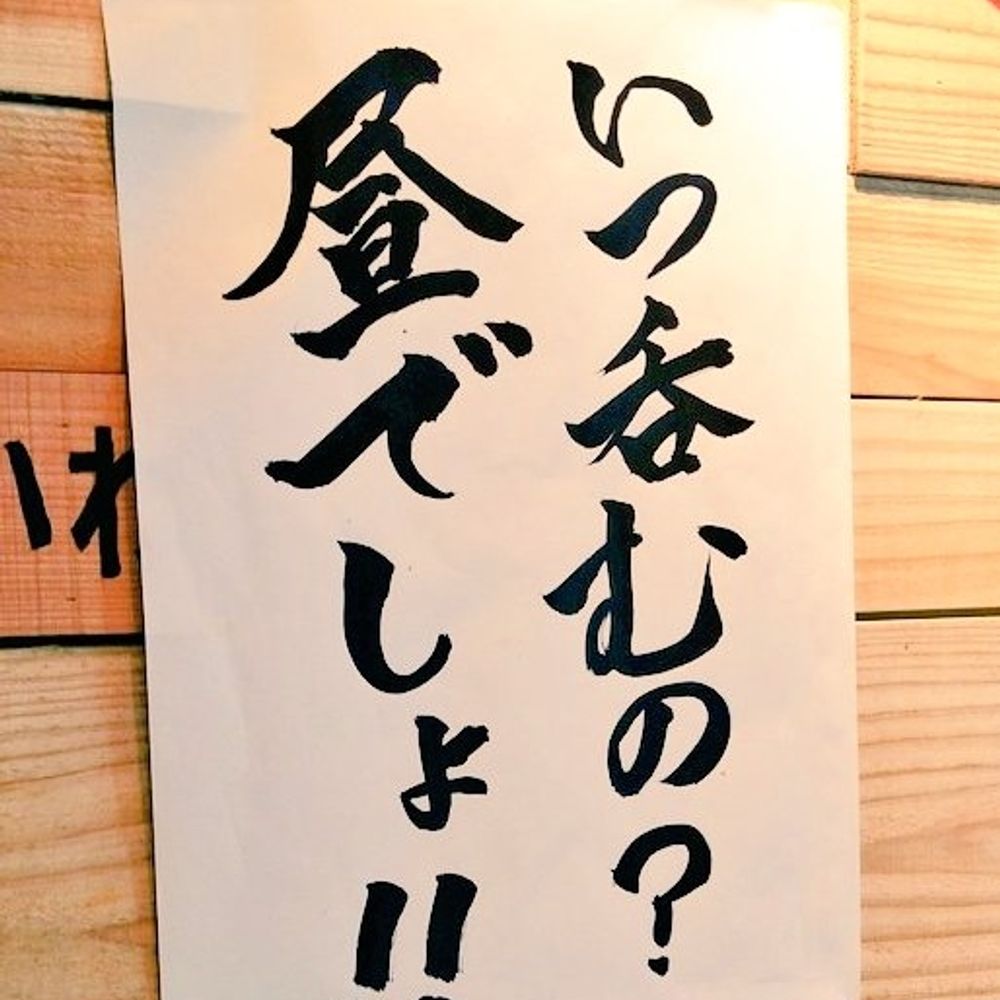 いつ呑むの?
昼でしょ!!